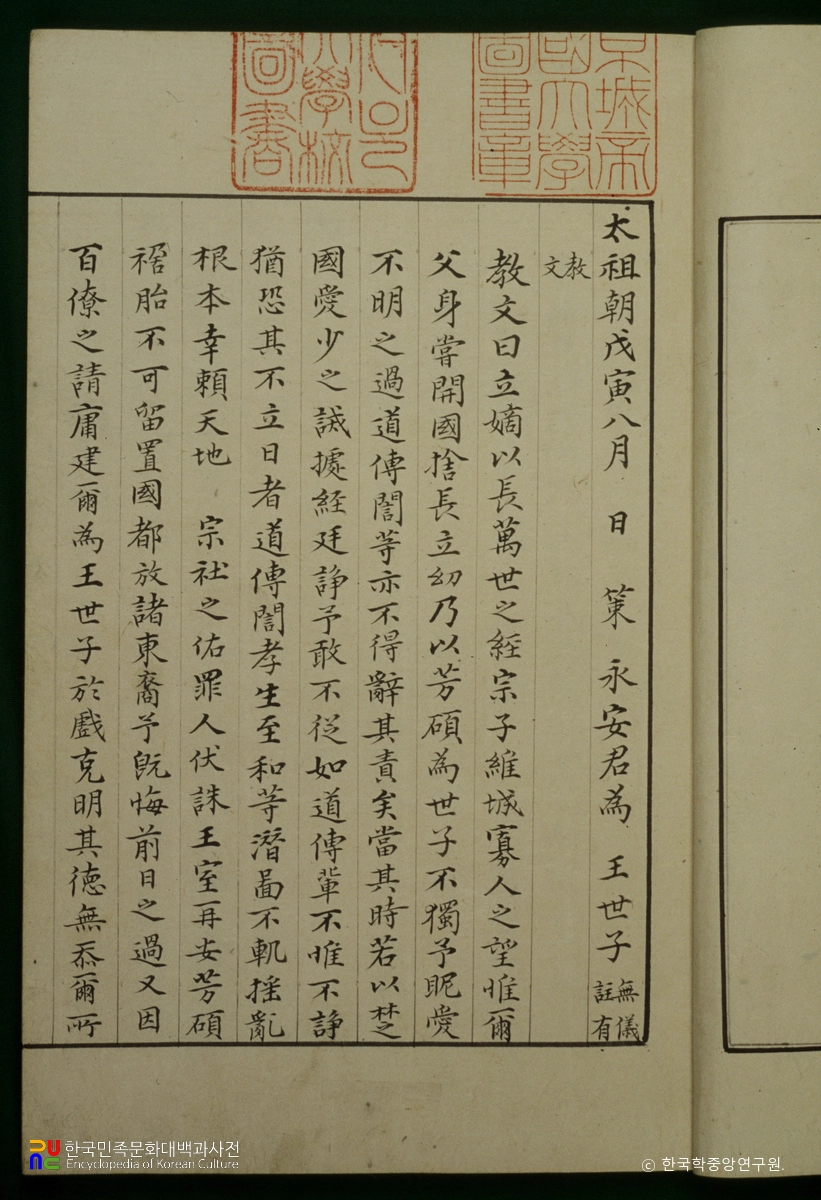 京城帝
國大學
圖書章
大學校
圖書
太祖朝戊寅八月 日 策 永安君為 王世子 無儀註有
教文
教文曰立嫡以長萬世之經宗子維城寡人之望惟爾
父身嘗開國捨長立幼乃以芳碩為世子不獨予昵愛
不明之過道傳誾等亦不得辭其責矣當其時若以楚
國愛少之誡據經廷諍予敢不從如道傳輩不惟不諍
猶恐其不立日者道傳誾孝生至和等潛啚不軌揺亂
根本幸賴天地 宗社之佑罪人伏誅王室再安芳碩
禍胎不可留置國都放諸東裔予旣悔前日之過又因
百僚之請庸建爾為王世子於戲克明其德無忝爾所
한국민족문화대백과사전
Encyclopedia of Korean Culture
© 한국학중앙연구원.